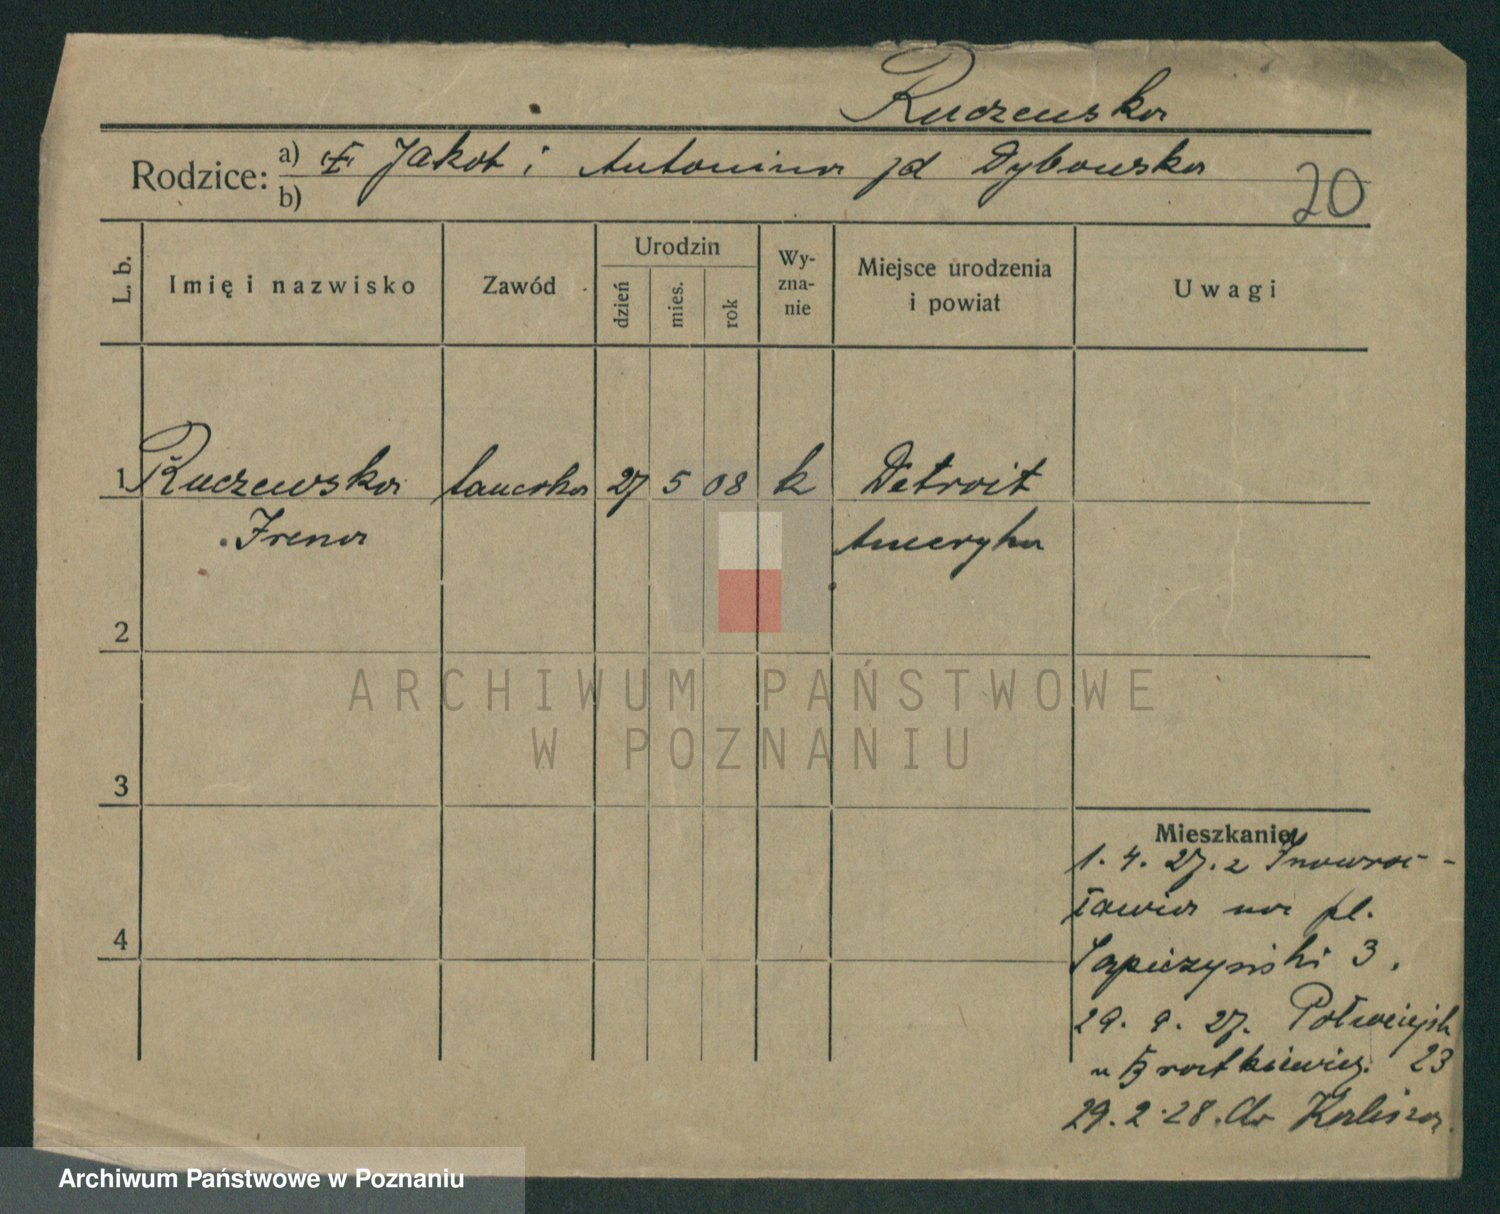 Ruczewska
Rodzice: a) Jakób i Antonina jd Dybowska
b)
20
L. b.
Imię i nazwisko
Zawód
Urodzin
dzień
mies.
rok
Wy-
zna-
nie
Miejsce urodzenia
i powiat
Uwagi
1 Ruczewska tancerka 27 5 08 k Detroit
Irena Ameryka
2
ARCHIWUM PAŃSTWOWE
W POZNANIU
3
Mieszkanie
1. 4. 27. z Inowroc-
ławia na pl.
Sapieżyński 3.
4
29. 9. 27. Półwiejsk
u Bratkiewicz. 23
29. 2. 28. do Kalisza.
Archiwum Państwowe w Poznaniu